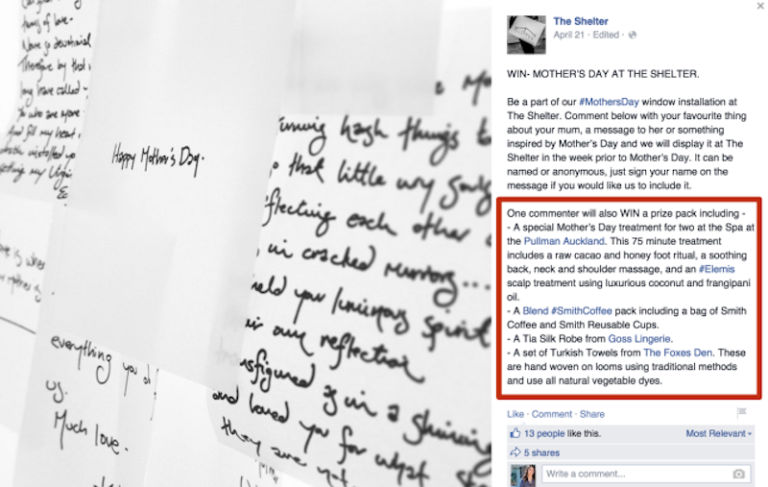 thing of love.
Happy Mother's Day.
running hash things to
that little wry
reflecting each other
in cracked mirrors...
held your luminous spirit
in our reflection
in a shining
and loved you for what
they are not
everything you
us.
Much love.
The Shelter
April 21 · Edited ·
WIN- MOTHER'S DAY AT THE SHELTER.
Be a part of our #MothersDay window installation at
The Shelter. Comment below with your favourite thing
about your mum, a message to her or something
inspired by Mother's Day and we will display it at The
Shelter in the week prior to Mother's Day. It can be
named or anonymous, just sign your name on the
message if you would like us to include it.
One commenter will also WIN a prize pack including -
- A special Mother's Day treatment for two at the Spa at
the Pullman Auckland. This 75 minute treatment
includes a raw cacao and honey foot ritual, a soothing
back, neck and shoulder massage, and an #Elemis
scalp treatment using luxurious coconut and frangipani
oil.
- A Blend #SmithCoffee pack including a bag of Smith
Coffee and Smith Reusable Cups.
- A Tia Silk Robe from Goss Lingerie.
- A set of Turkish Towels from The Foxes Den. These
are hand woven on looms using traditional methods
and use all natural vegetable dyes.
Like · Comment · Share
13 people like this.
Most Relevant
5 shares
Write a comment...